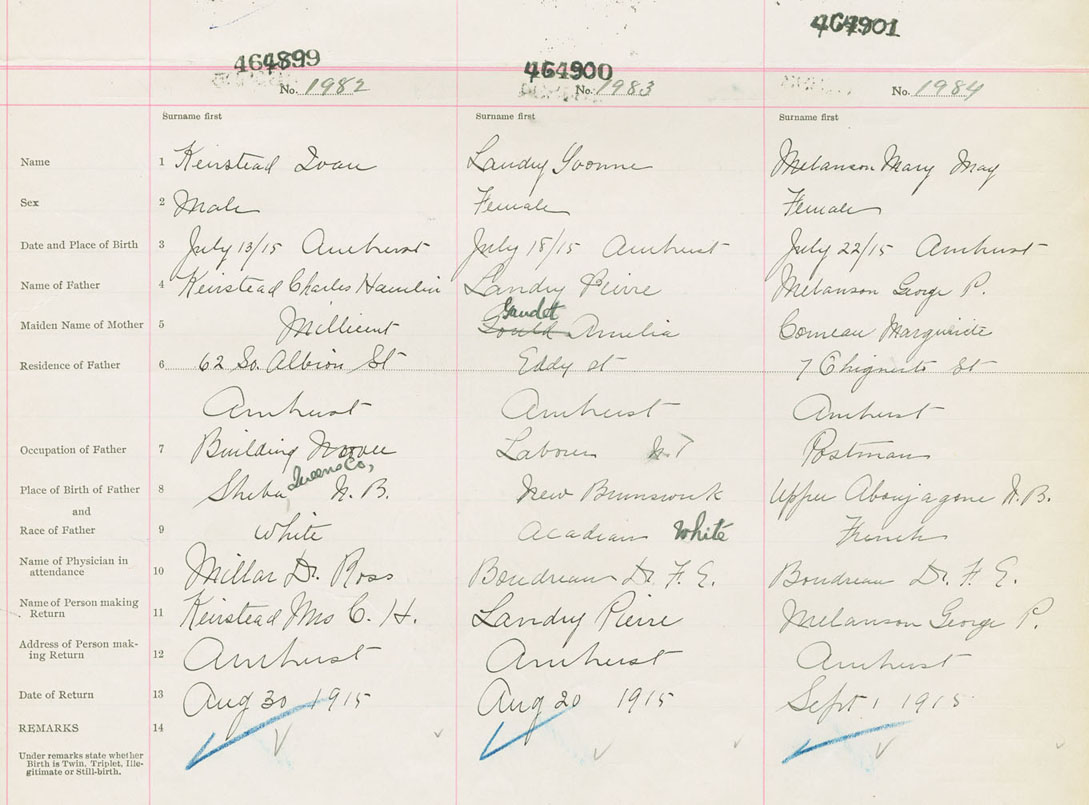 464899 464900 464901
No. 1982 No. 1983 No. 1984
Surname first Surname first Surname first
Name 1 Keirstead Ivan Landry Yvonne Melanson Mary May
Sex 2 Male Female Female
Date and Place of Birth 3 July 13/15 Amherst July 18/15 Amherst July 22/15 Amherst
Name of Father 4 Keirstead Charles Hamlin Landry Pierre Melanson George P.
Gaudet
Maiden Name of Mother 5 Millicent Gould Amelia Comeau Marguerite
Residence of Father 6 62 So. Albion St Eddy st 7 Chignecto St
Amherst Amherst Amherst
Occupation of Father 7 Building Mover Labourer Postman
Queens Co,
Place of Birth of Father 8 N. B. New Brunswick Upper N. B.
and
Race of Father 9 White Acadian White French
Name of Physician in
attendance 10 Millar Dr. Ross Boudreau Dr. F. E. Boudreau Dr. F. E.
Name of Person making
Return 11 Keirstead Mrs C. H. Landry Pierre Melanson George P.
Address of Person mak-
ing Return 12 Amherst Amherst Amherst
Date of Return 13 Aug 30 1915 Aug 20 1915 Sept. 1 1915
REMARKS 14
Under remarks state whether
Birth is Twin, Triplet, Ille-
gitimate or Still-birth.